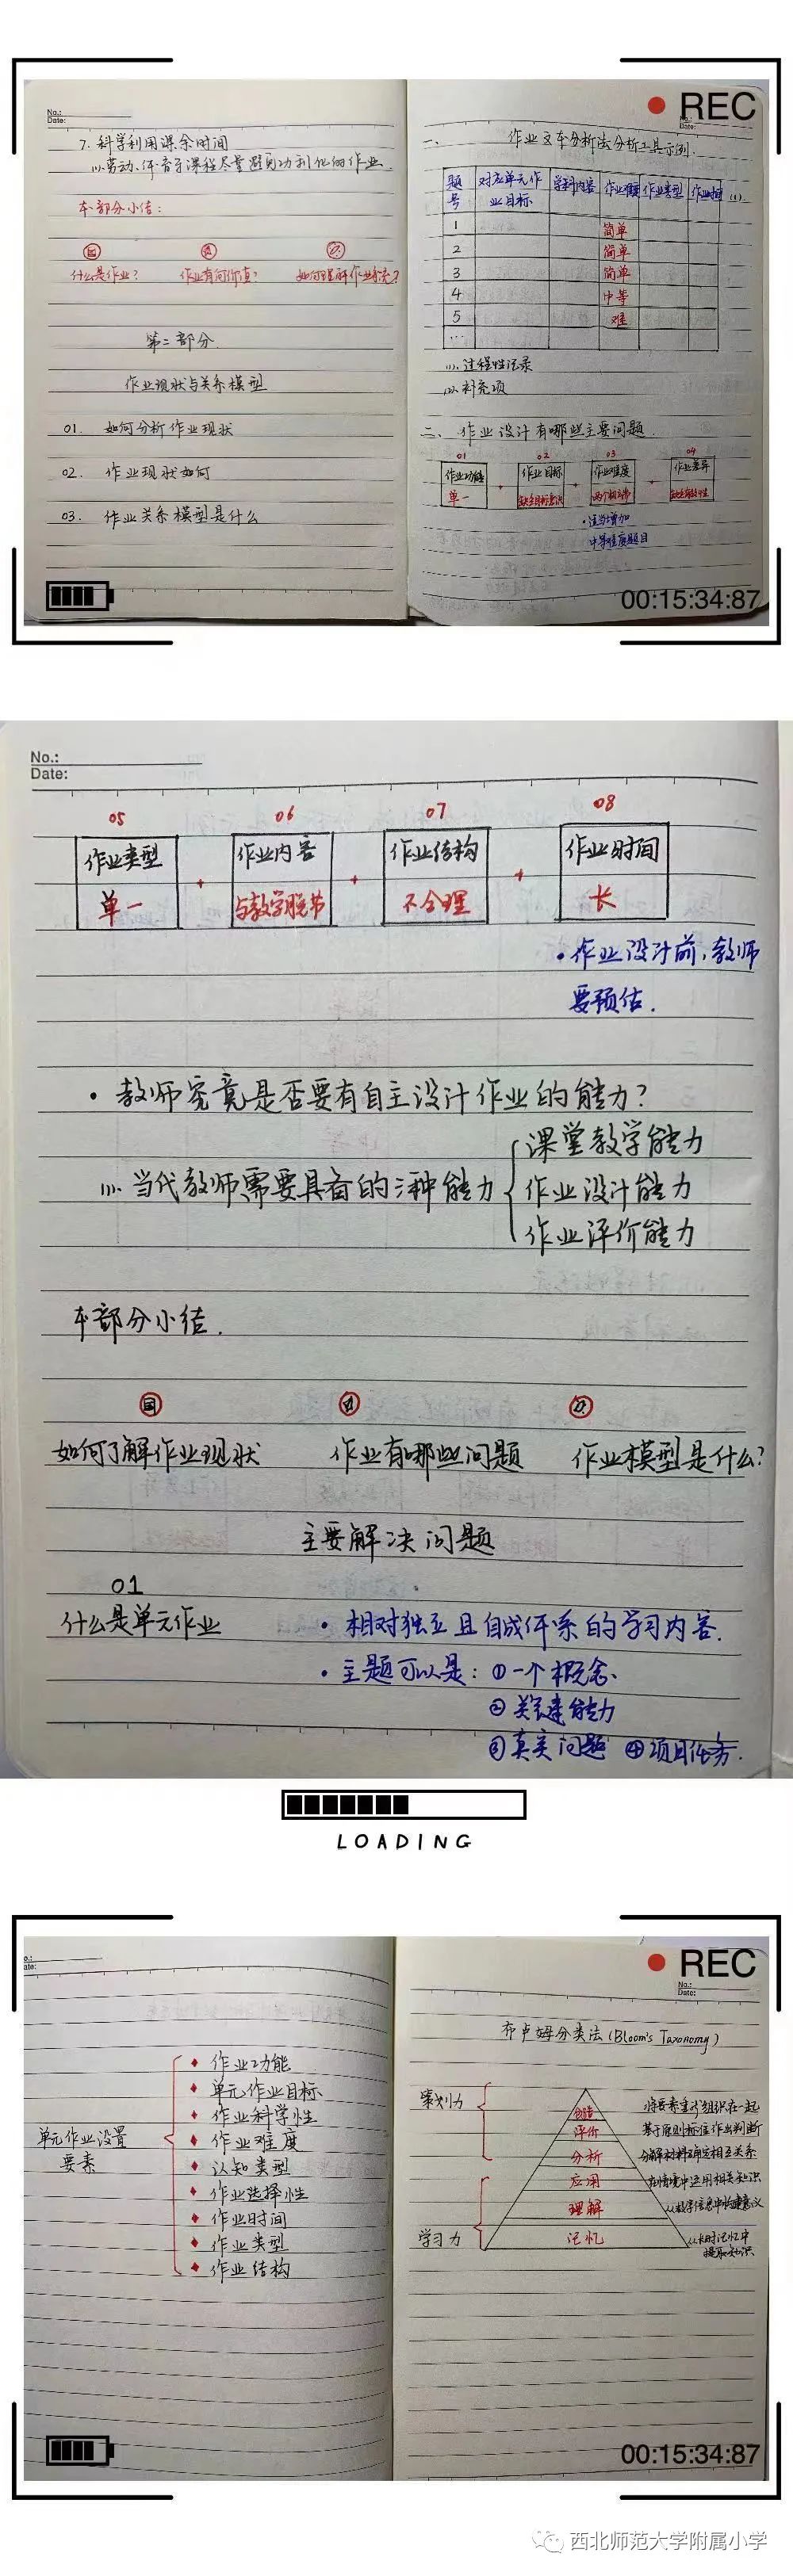 REC
No.:
Date:
7. 科学利用课余时间
(1). 劳动、体音等课程尽量避免功利化的作业.
本部分小结:
什么是作业? 作业有何价值? 如何理解作业研究?
第二部分.
作业现状与关系模型
01. 如何分析作业现状
02. 作业现状如何
03. 作业关系模型是什么
No.:
Date:
一、 作业文本分析法分析工具示例.
题号 对应单元作业目标 学科内容 作业难度 作业类型 作业时间
1 简单
2 简单
3 简单
4 中等
5 难
...
(1). 过程性记录
(2). 补充项
二、 作业设计有哪些主要问题.
01 02 03 04
作业功能 + 作业目标 + 作业难度 + 作业差异
单一
• 适当增加
中等难度题目
00:15:34:87
No.:
Date:
05 06 07 08
作业类型 + 作业内容 + 作业结构 + 作业时间
单一 与教学脱节 不合理 长
• 作业设计前,教师
要预估.
• 教师究竟是否要有自主设计作业的能力?
(1). 当代教师需要具备的三种能力
课堂教学能力
作业设计能力
作业评价能力
本部分小结.
如何了解作业现状 作业有哪些问题 作业模型是什么?
主要解决问题
01
什么是单元作业
• 相对独立且自成体系的学习内容.
• 主题可以是: ①一个概念.
②关键能力
③真实问题 ④项目任务.
LOADING
REC
单元作业设置
要素
作业功能
单元作业目标
作业科学性
作业难度
认知类型
作业选择性
作业时间
作业类型
作业结构
No.:
Date:
布卢姆分类法(Bloom's Taxonomy)
策划力
创造 将要素重新组织在一起
评价 基于原则标准作出判断
分析 分解材料确定相互关系
学习力
应用 在情境中运用相关知识
理解 从教学信息中构建意义
记忆 从长时记忆中
提取知识
00:15:34:87
西北师范大学附属小学